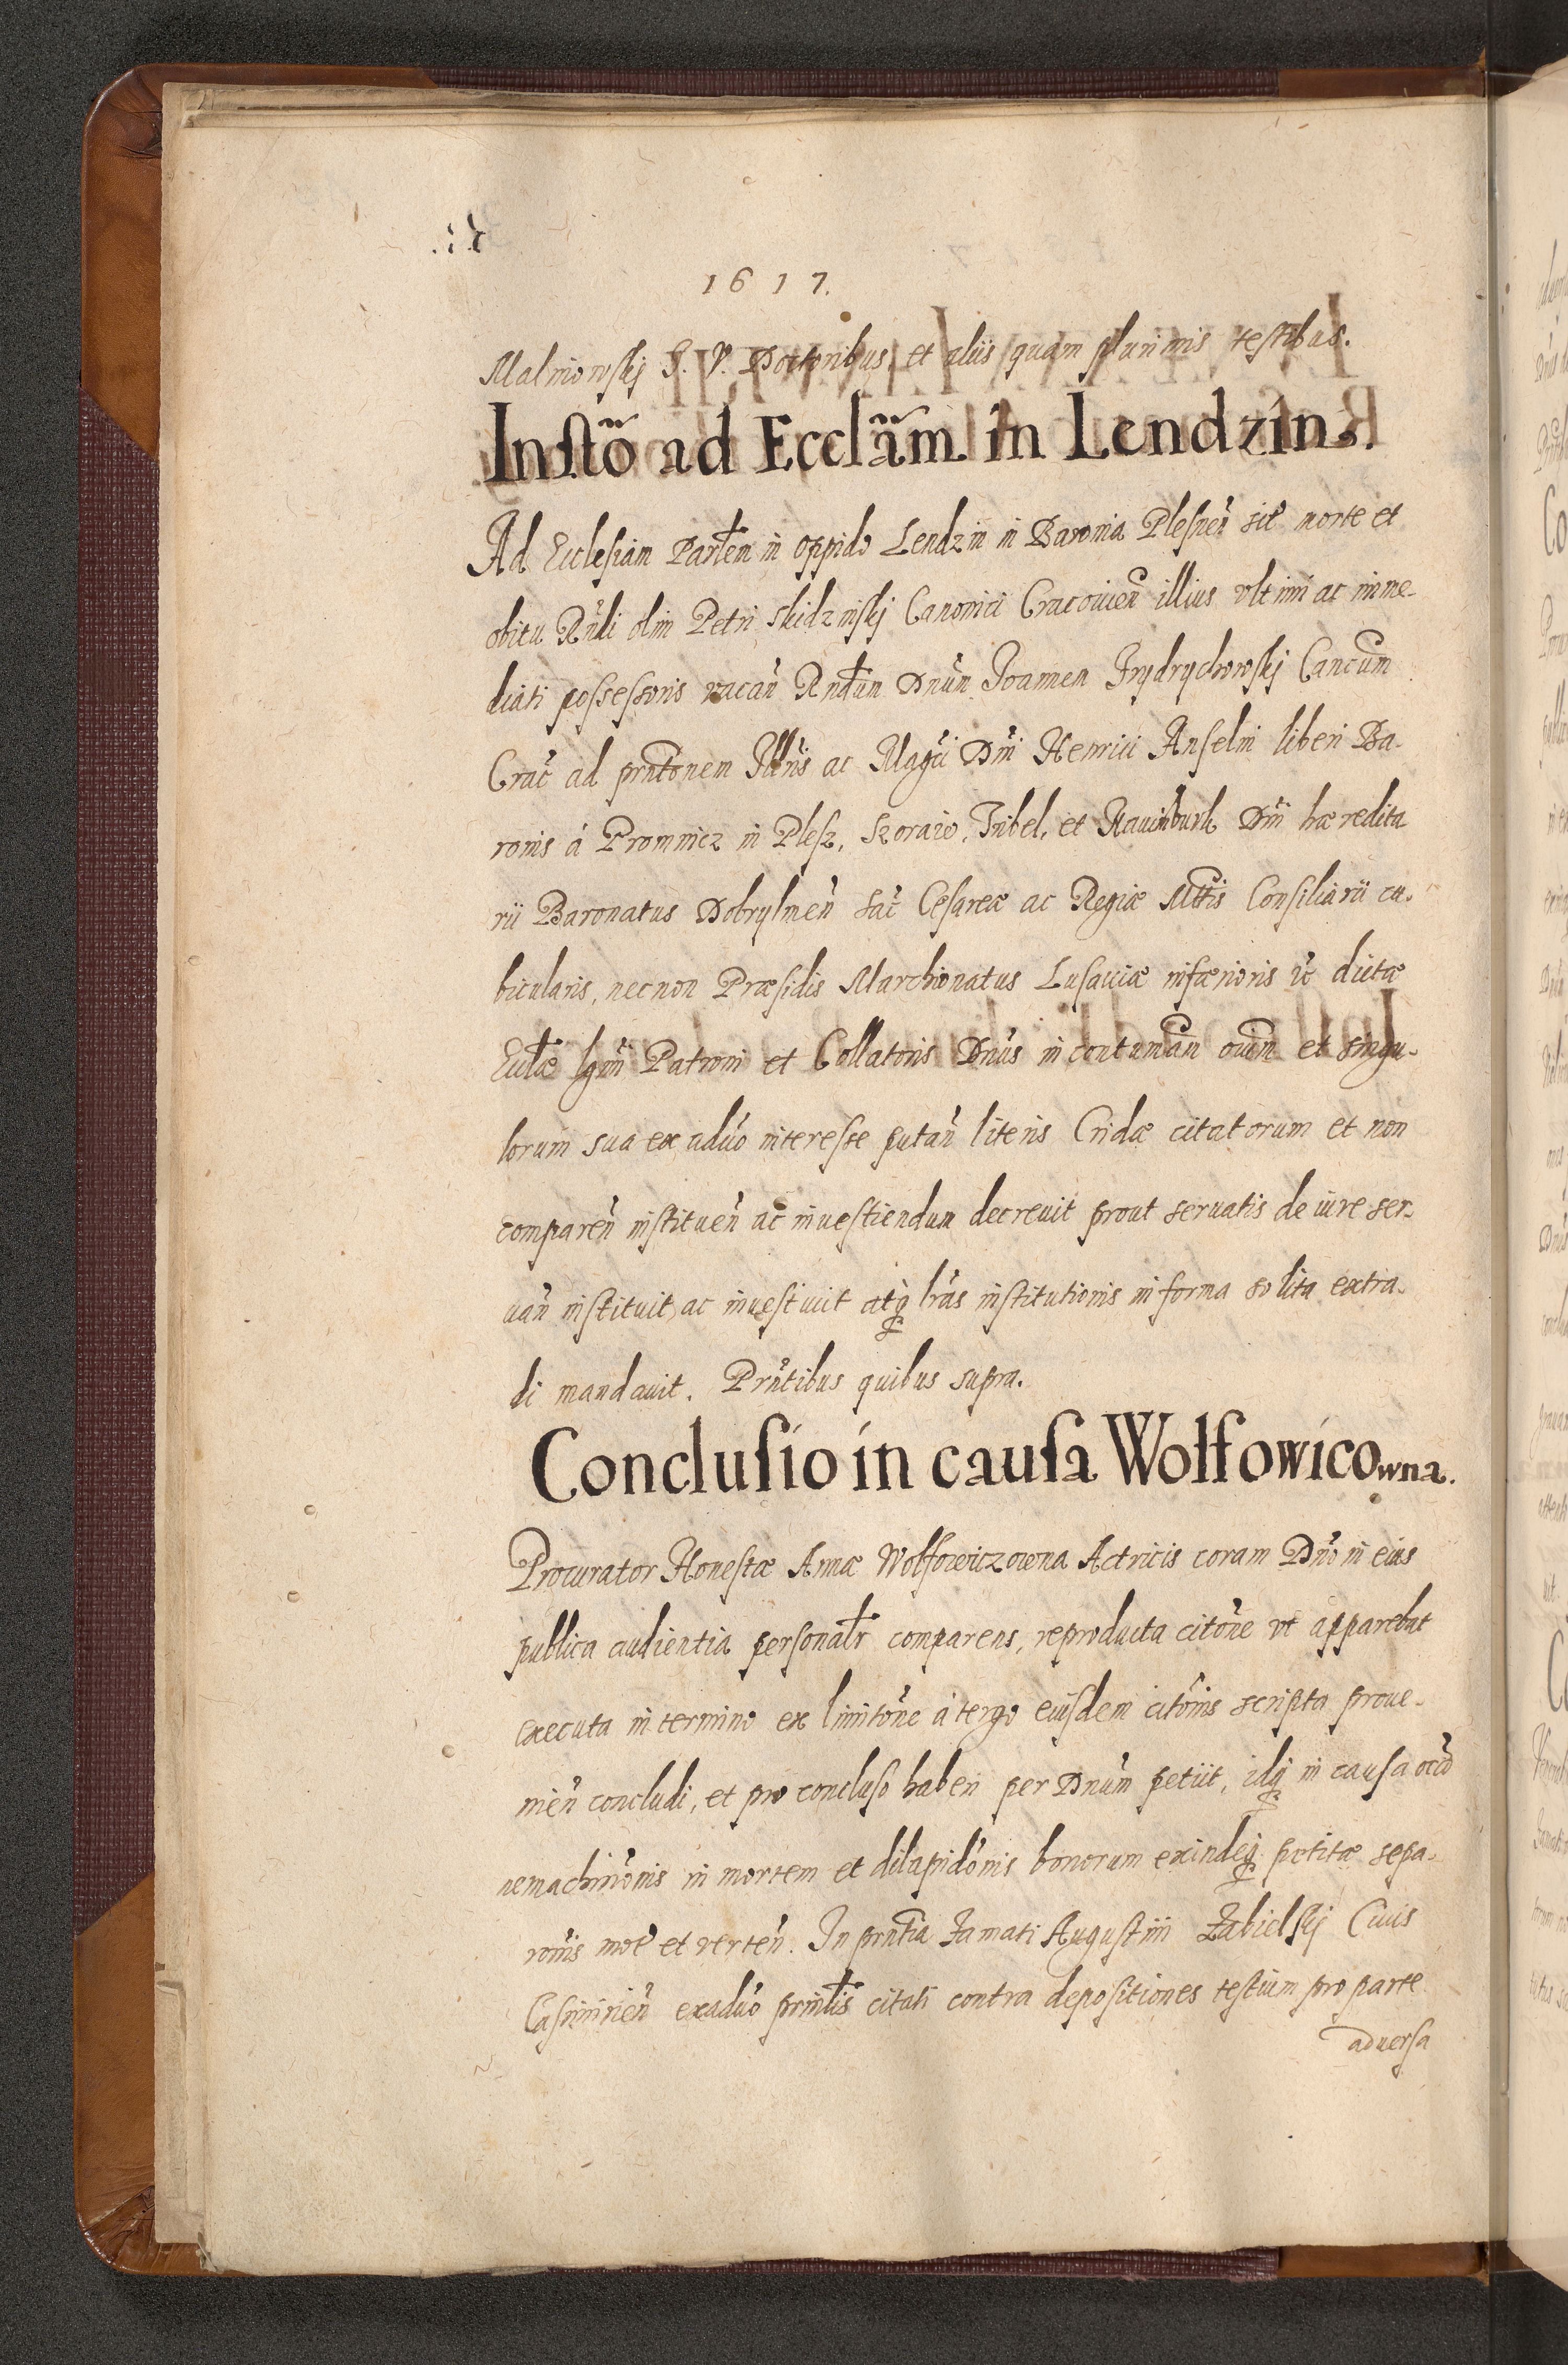 1617.
Malinowskj S. V. Doctoribus, et aliis quam plurimis testibus.
Instõ ad Ecclãm in Lendzin.
Ad Ecclesiam Parlem in oppido Lendzin in Baronia Plesneñ siẽ morte et
obitu Rñdi olim Petri Skidzinskj Canonici Cracovieñ illius vltimi ac imme-
diati possessoris vacañ Rndum Dnũm Joannem Frydrychowskj Cancũm
Crac̃ ad prntõnem Illñis ac Magc̃i Dñi Henrici Anselmi liberi Ba-
ronis á Promnicz in Plesz, Szoraw, Tribel, et Nauinburk Dñi hæredita
rii Baronatus Dobrylneñ sac̃ Cesareæ ac Regiæ Mttis Consiliarii cu-
bicularis, necnon Præsidis Marchionatus Lusaciæ inferioris vc̃ dictæ
Eccłæ lgmi Patroni et Collatoris Dnũs in contumãm oviũm et singu-
lorum sua ex aduõ interesse putañ literis Cridæ citatorum et non
compareñ instituеñ ac inuestiendum decreuit prout seruatis de iure ser-
uañ instituit, ac inuestiuit atq; lrãs institutionis in forma solita extra-
di mandauit. Prñtibus quibus supra.
Conclusio in causa Wolfowicowna.
Procurator Honestæ Annæ Wolfowiczowna Actricis coram Dnõ in eius
publica audientia personalr comparens, reproducta citõne vt apparebat
executa in termino ex limitõne à tergo eiusdem citõnis scripta proue-
nieñ concludi, et pro concluso haberi per Dnũm petiit, idq; in causa occõ
nemachinõnis in mortem et dilapidõnis bonorum exindeq; petitæ sepa-
rõnis moẽ et verteñ. In prntia Famati Augustini Zabielskj Ciuis
Casimirieñ exaduõ prinlis citati contra depositiones testium pro parte
aduersa